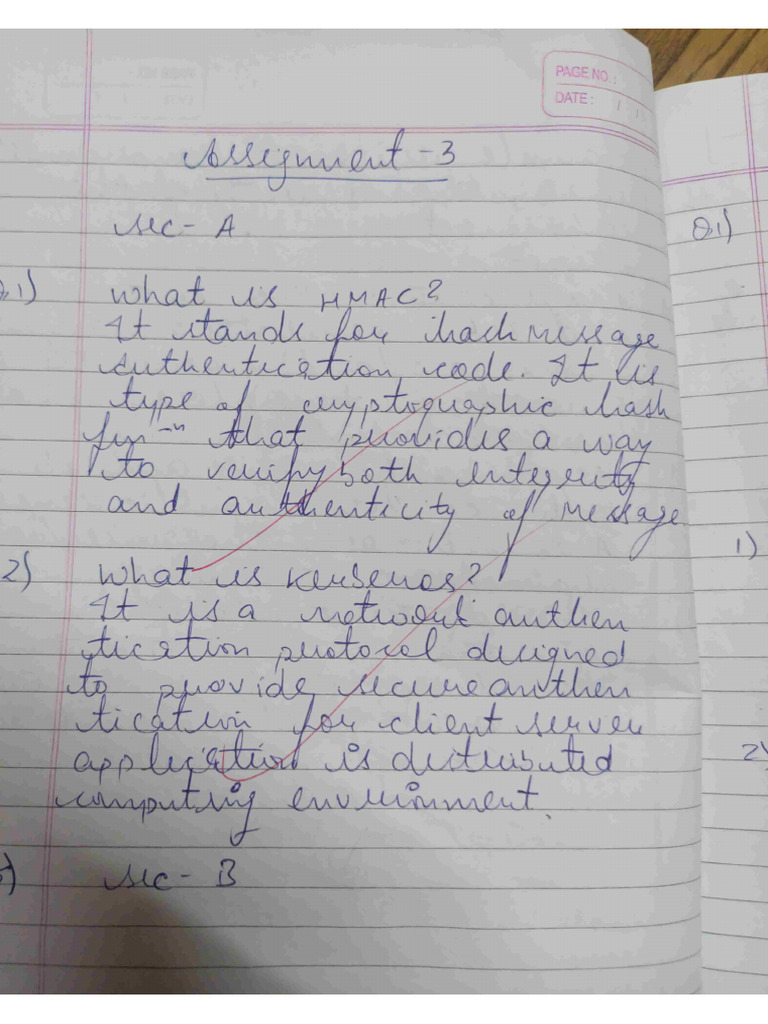 PAGE NO.:
DATE: / /
Assignment - 3
sec - A
Q.1)
Q.1) What is HMAC?
It stands for hash message
authentication code. It is
type of cryptographic hash
fun-n that provides a way
to verify both integrity
and authenticity of message
2) What is Kerberos?
It is a network authen
tication protocol designed
to provide secure authen
tication for client server
application is distributed
computing environment.
sec - B
1)
2)